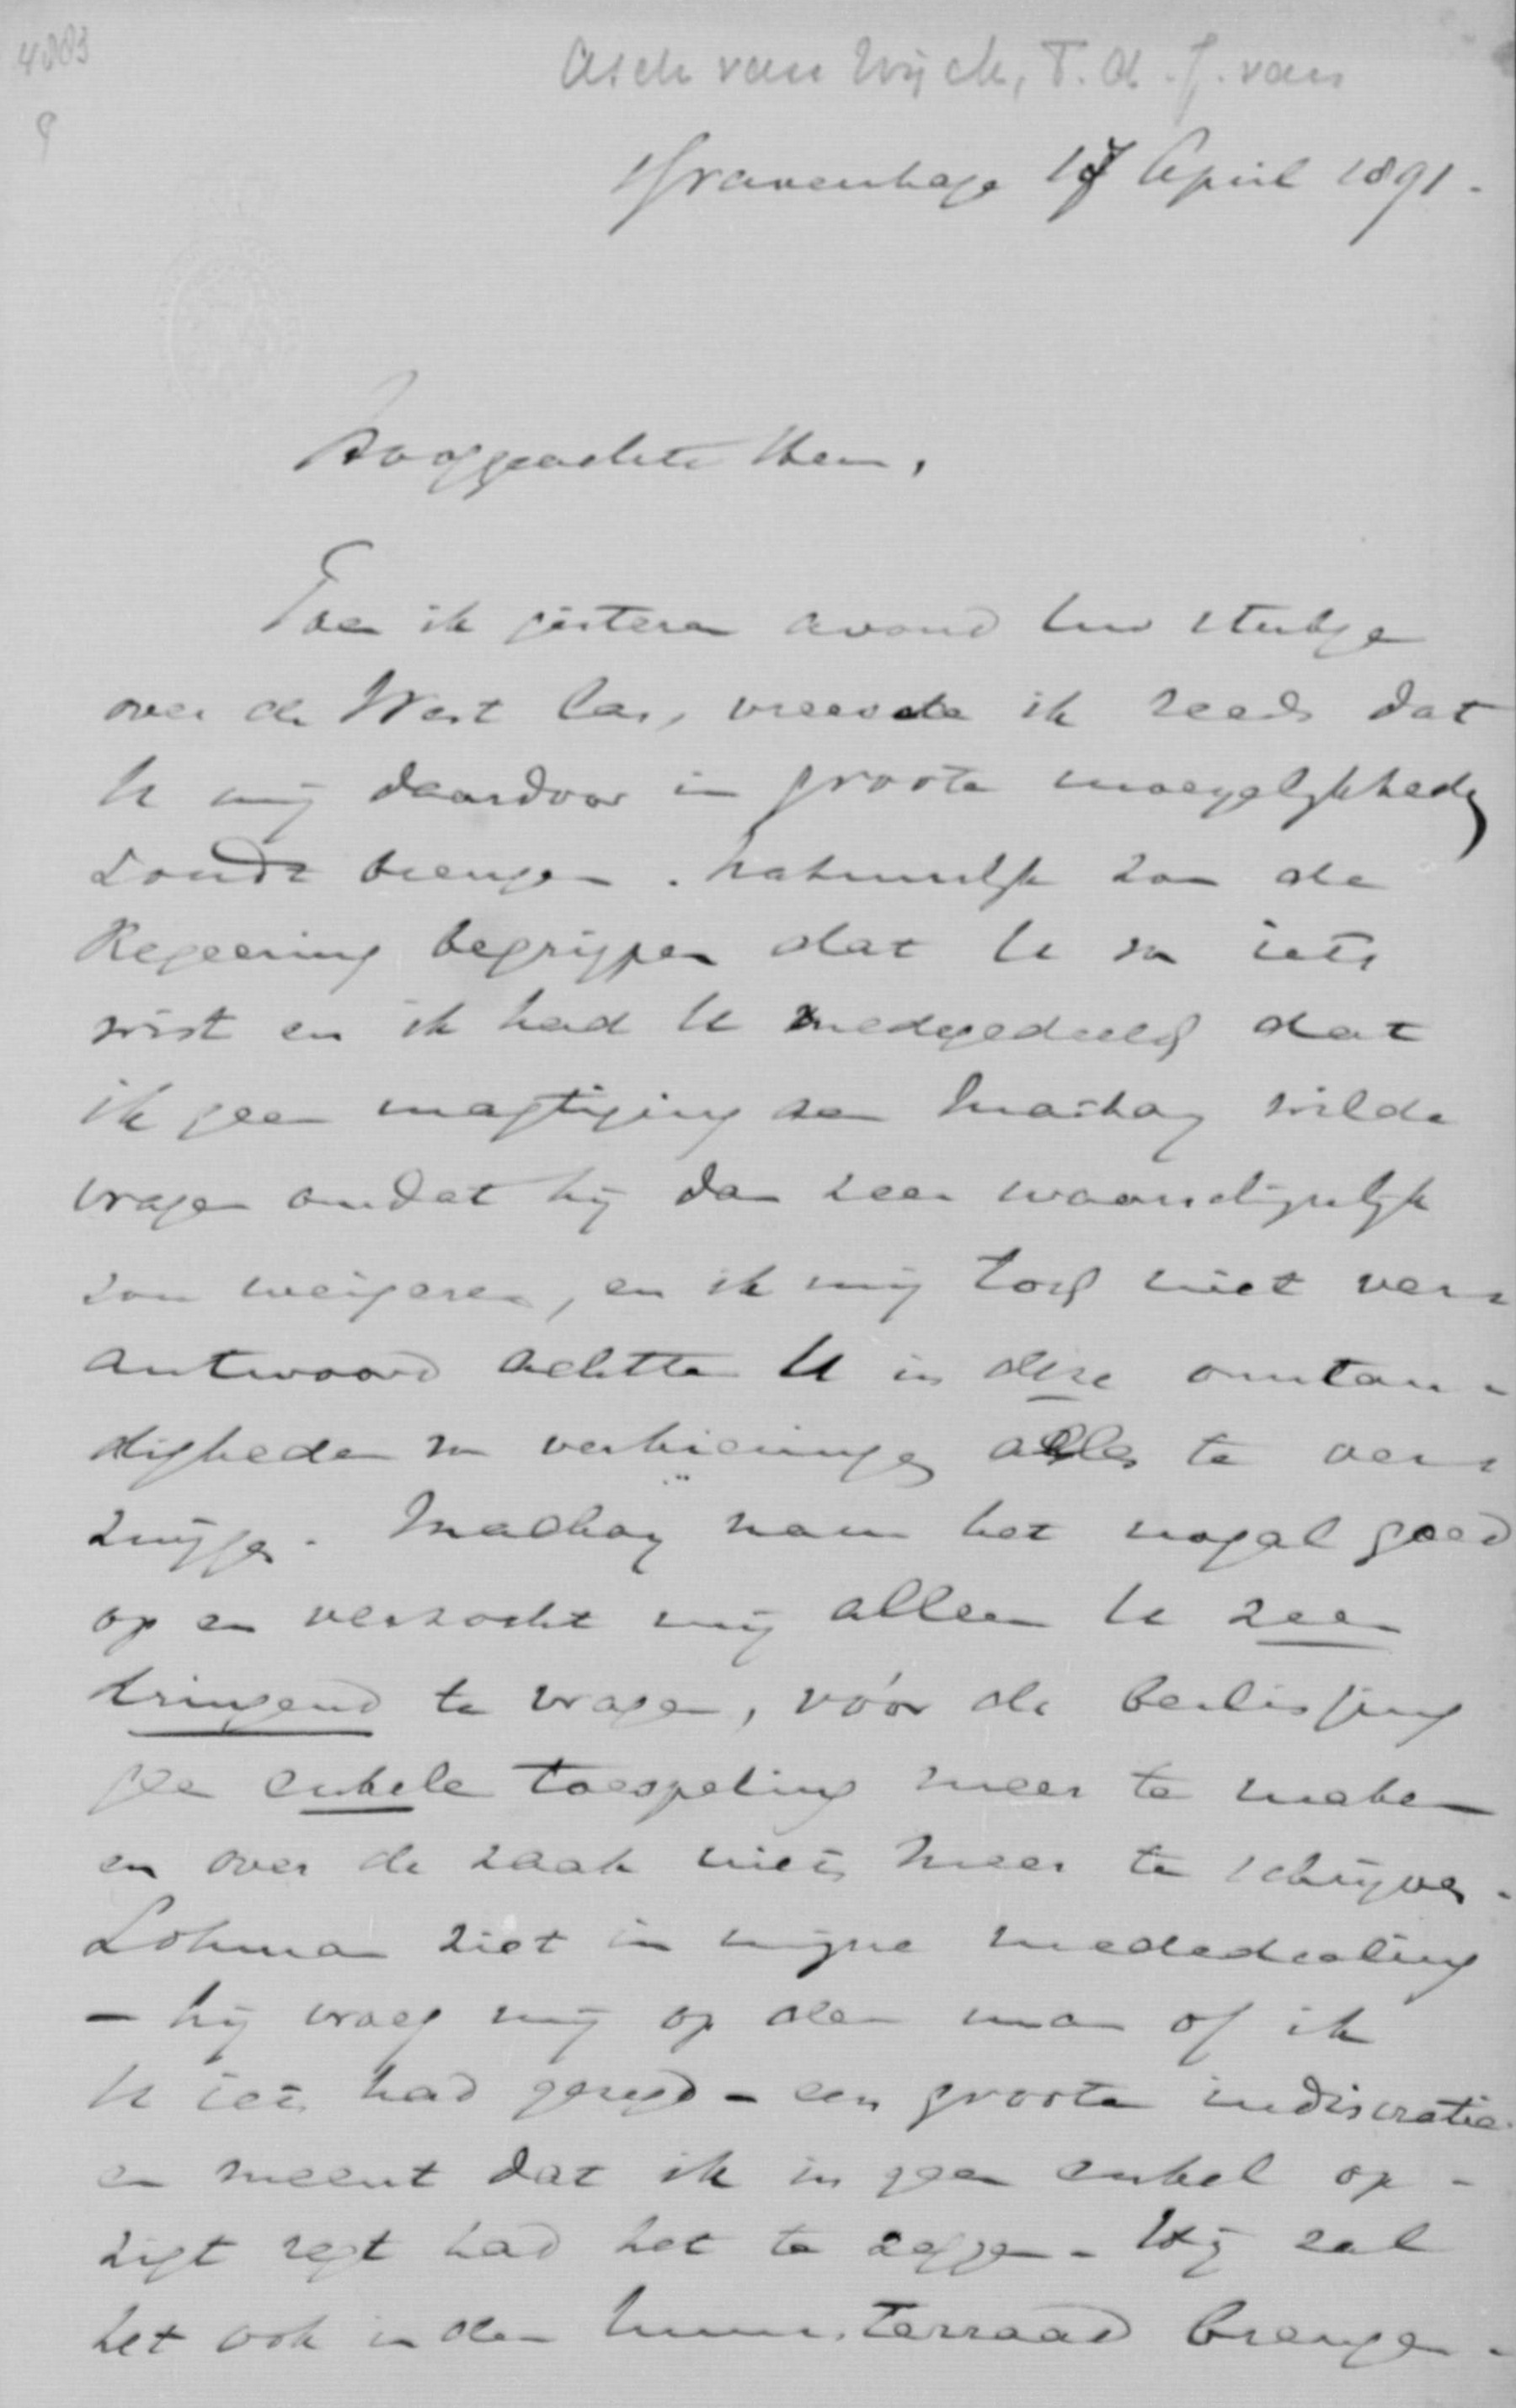 4883
9
Asch van Wijck, T. A. J. van
's Gravenhage 17 April 1891.
Hooggeachte Heer,
Toen ik gisteren avond Uw stukje
over de West las, vreesde ik reeds dat
U mij daardoor in groote moeyelijkheden
zoudt brengen. Natuurlijk zou de
Regeering begrijpen dat U er iets
wist en ik had U medegedeeld dat
ik geen magtiging aan Mackay wilde
vragen omdat hij dan zeer waarschijnlijk
zou weigeren, en ik mij toch niet ver-
antwoord achtte U in deze omstan-
digheden en verkiezingen alles te ver-
zwijgen. Mackay nam het nogal goed
op en verzocht mij alleen U zeer
dringend te vragen, vóór de beslissing
geen enkele toespeling meer te maken
en over de zaak niets meer te schrijven.
Lohman ziet in mijne mededeeling
- hij vroeg mij op den man of ik
U iets had gezegd - een groote indiscretie.
en meent dat ik in geen enkel op-
zigt regt had het te zeggen. Hij zal
het ook in den Ministerraad brengen.